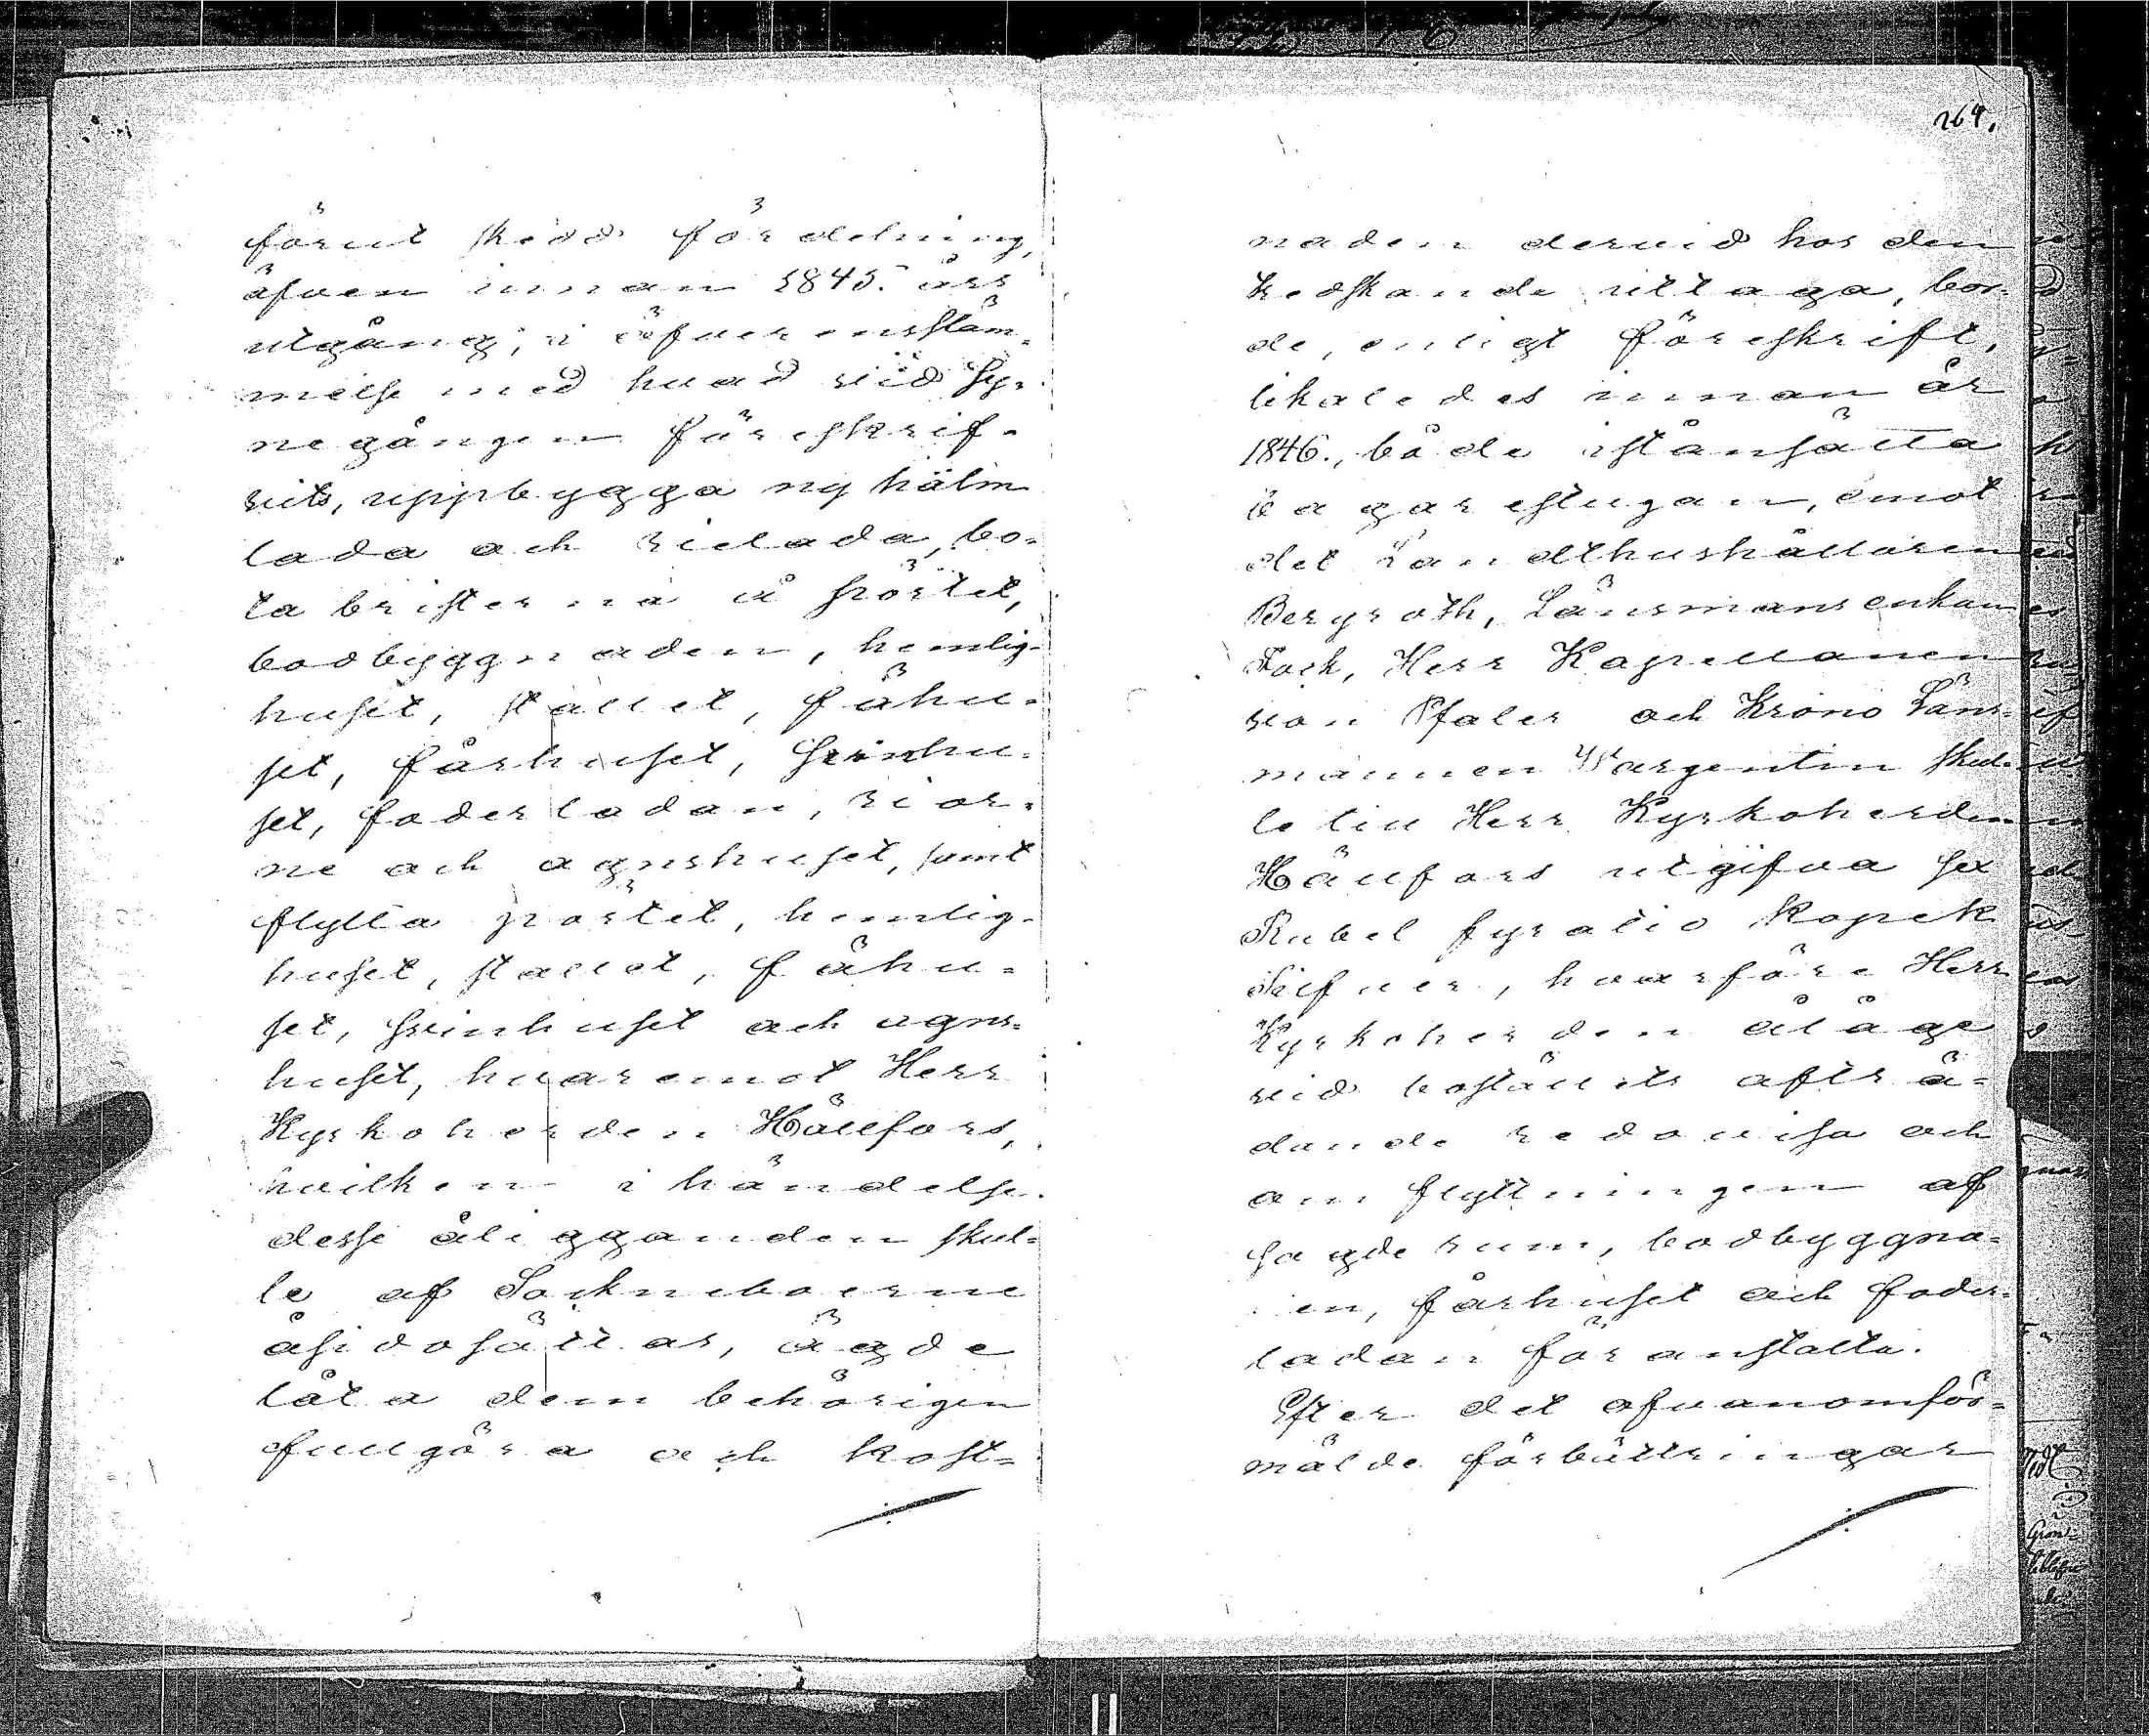 förut skedd fördelning,
äfven innan 1845. års
utgång, i öfverensstäm-
melse med hvad vid Sy-
negången föreskrif-
vits, uppbygga ny halm
lada och rielada, bo-
ta bristerna å pörtet,
bodbyggnaden, hemlig-
huset, stallet, fähu-
set, fårhuset, svinhu-
set, foderladan, rior-
ne och agnshuset, samt
flytta pörtet, hemlig-
huset, stallet, fähu-
set, svinhuset och agns-
huset, hvaremot Herr
Kyrkoherden Hällfors,
hvilken i händelse
desse åligganden skul-
le af Sockneboerne
åsidosättas, ägde
låta dem behörigen
fullgöra och kost-
264.
naden dervid hos den
tredskande uttaga, bor-
de, enligt föreskrift,
likaledes innan år
1846., både iståndsätta
bagarestugan, emot
det Landthushållaren
Bergroth, Länsmansenkan
Fock, Herr Kapellanen
von Pfaler och Krono Läns-
mannen Wargentin skul-
le till Herr Kyrkoherden
Hällfors utgifva sex
Rubel fyratio Kopek
Silfver, hvarföre Herr
Kyrkoherden ålåge
vid boställets afträ-
dande redovisa och
om flyttningen af
sagde rum, bodbyggna-
en, fårhuset och foder-
ladan föranstalta.
Efter det ofvanomför-
mälde förbättringar